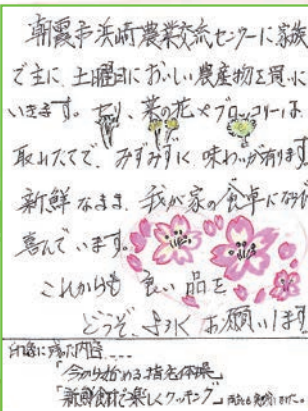 朝霞市浜崎農業交流センターに家族
で主に、土曜日においしい農産物を買いに
いきます。セリ、菜の花、ブロッコリーは、
取れたてで、みずみずしく、味わいが有ります
新鮮なまま、我が家の食卓に
喜んでいます。
これからも良い品を
どうぞ、よろしくお願いします
印象に残った内容....
「今から始める指先体操」
「新鮮食材で楽しくクッキング」